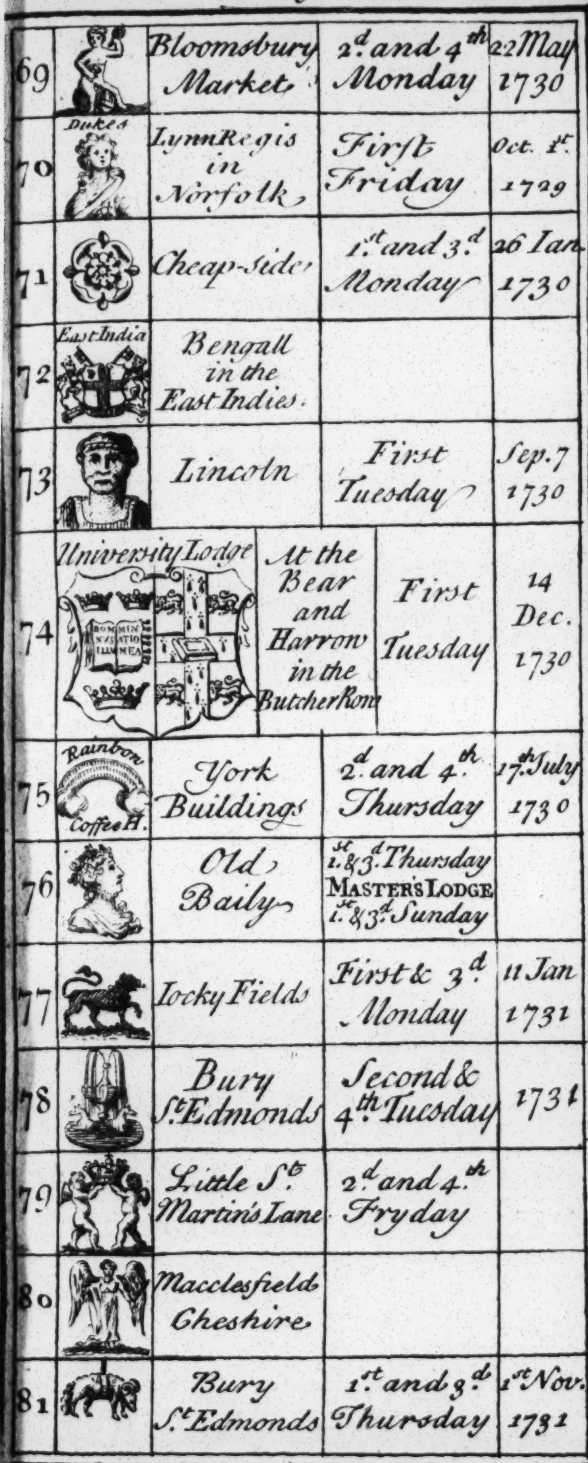 69
Bloomsbury
Market
2.d and 4th
Monday
22 May
1730
70
Dukes
Lynn Regis
in
Norfolk
First
Friday
Oct. 1st.
1729
71
Cheap-side
1.st and 3.d
Monday
26 Ian
1730
72
East India
Bengall
in the
East Indies.
73
Lincoln
First
Tuesday
Sep. 7
1730
74
University Lodge
DOM MIN
NVS ATIO
ILLU MEA
At the
Bear
and
Harrow
in the
Butcher Row
First
Tuesday
14
Dec.
1730
75
Rainbow
Coffee H.
York
Buildings
2.d and 4.th
Thursday
17.th July
1730
76
Old
Baily
1.st & 3.d Thursday
MASTER'S LODGE
1.st & 3.d Sunday
77
Iocky Fields
First & 3.d
Monday
11 Jan
1731
78
Bury
S.t Edmonds
Second &
4.th Tuesday
1731
79
Little S.t
Martin's Lane
2.d and 4.th
Fryday
80
Macclesfield
Cheshire
81
Bury
S.t Edmonds
1.st and 3.d
Thursday
1st Nov.
1731